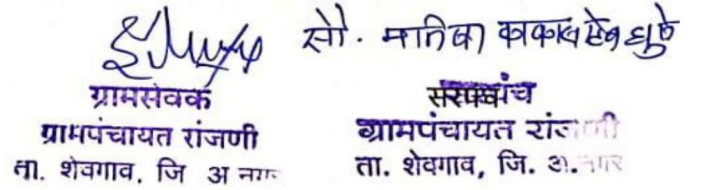 सौ. मनिषा काकासाहेब घुले
ग्रामसेवक
ग्रामपंचायत रांजणी
ता. शेवगाव, जि अ नगर
सरपंच
ग्रामपंचायत रांजणी
ता. शेवगाव, जि. अ.नगर